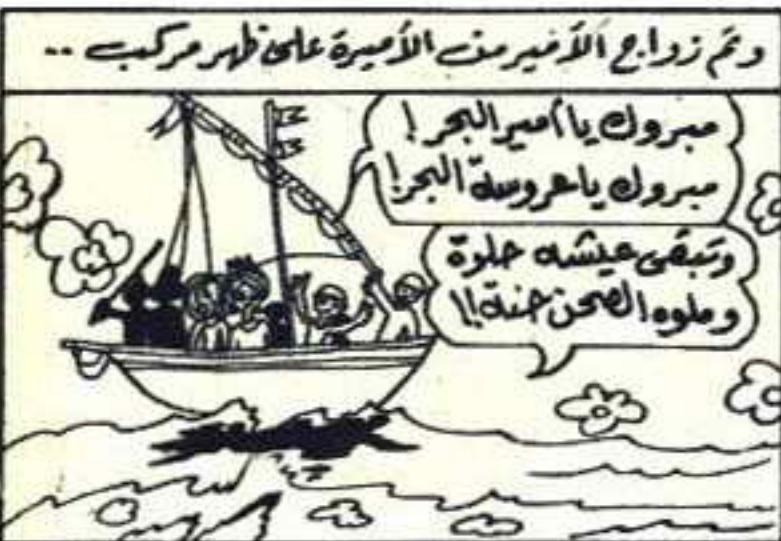 وتم زواج الأمير من الأميرة على ظهر مركب ..
مبروك يا أمير البحر !
مبروك يا عروسة البحر !
وتبقى عيشه حلوة
وملوه الصحن جنة !!